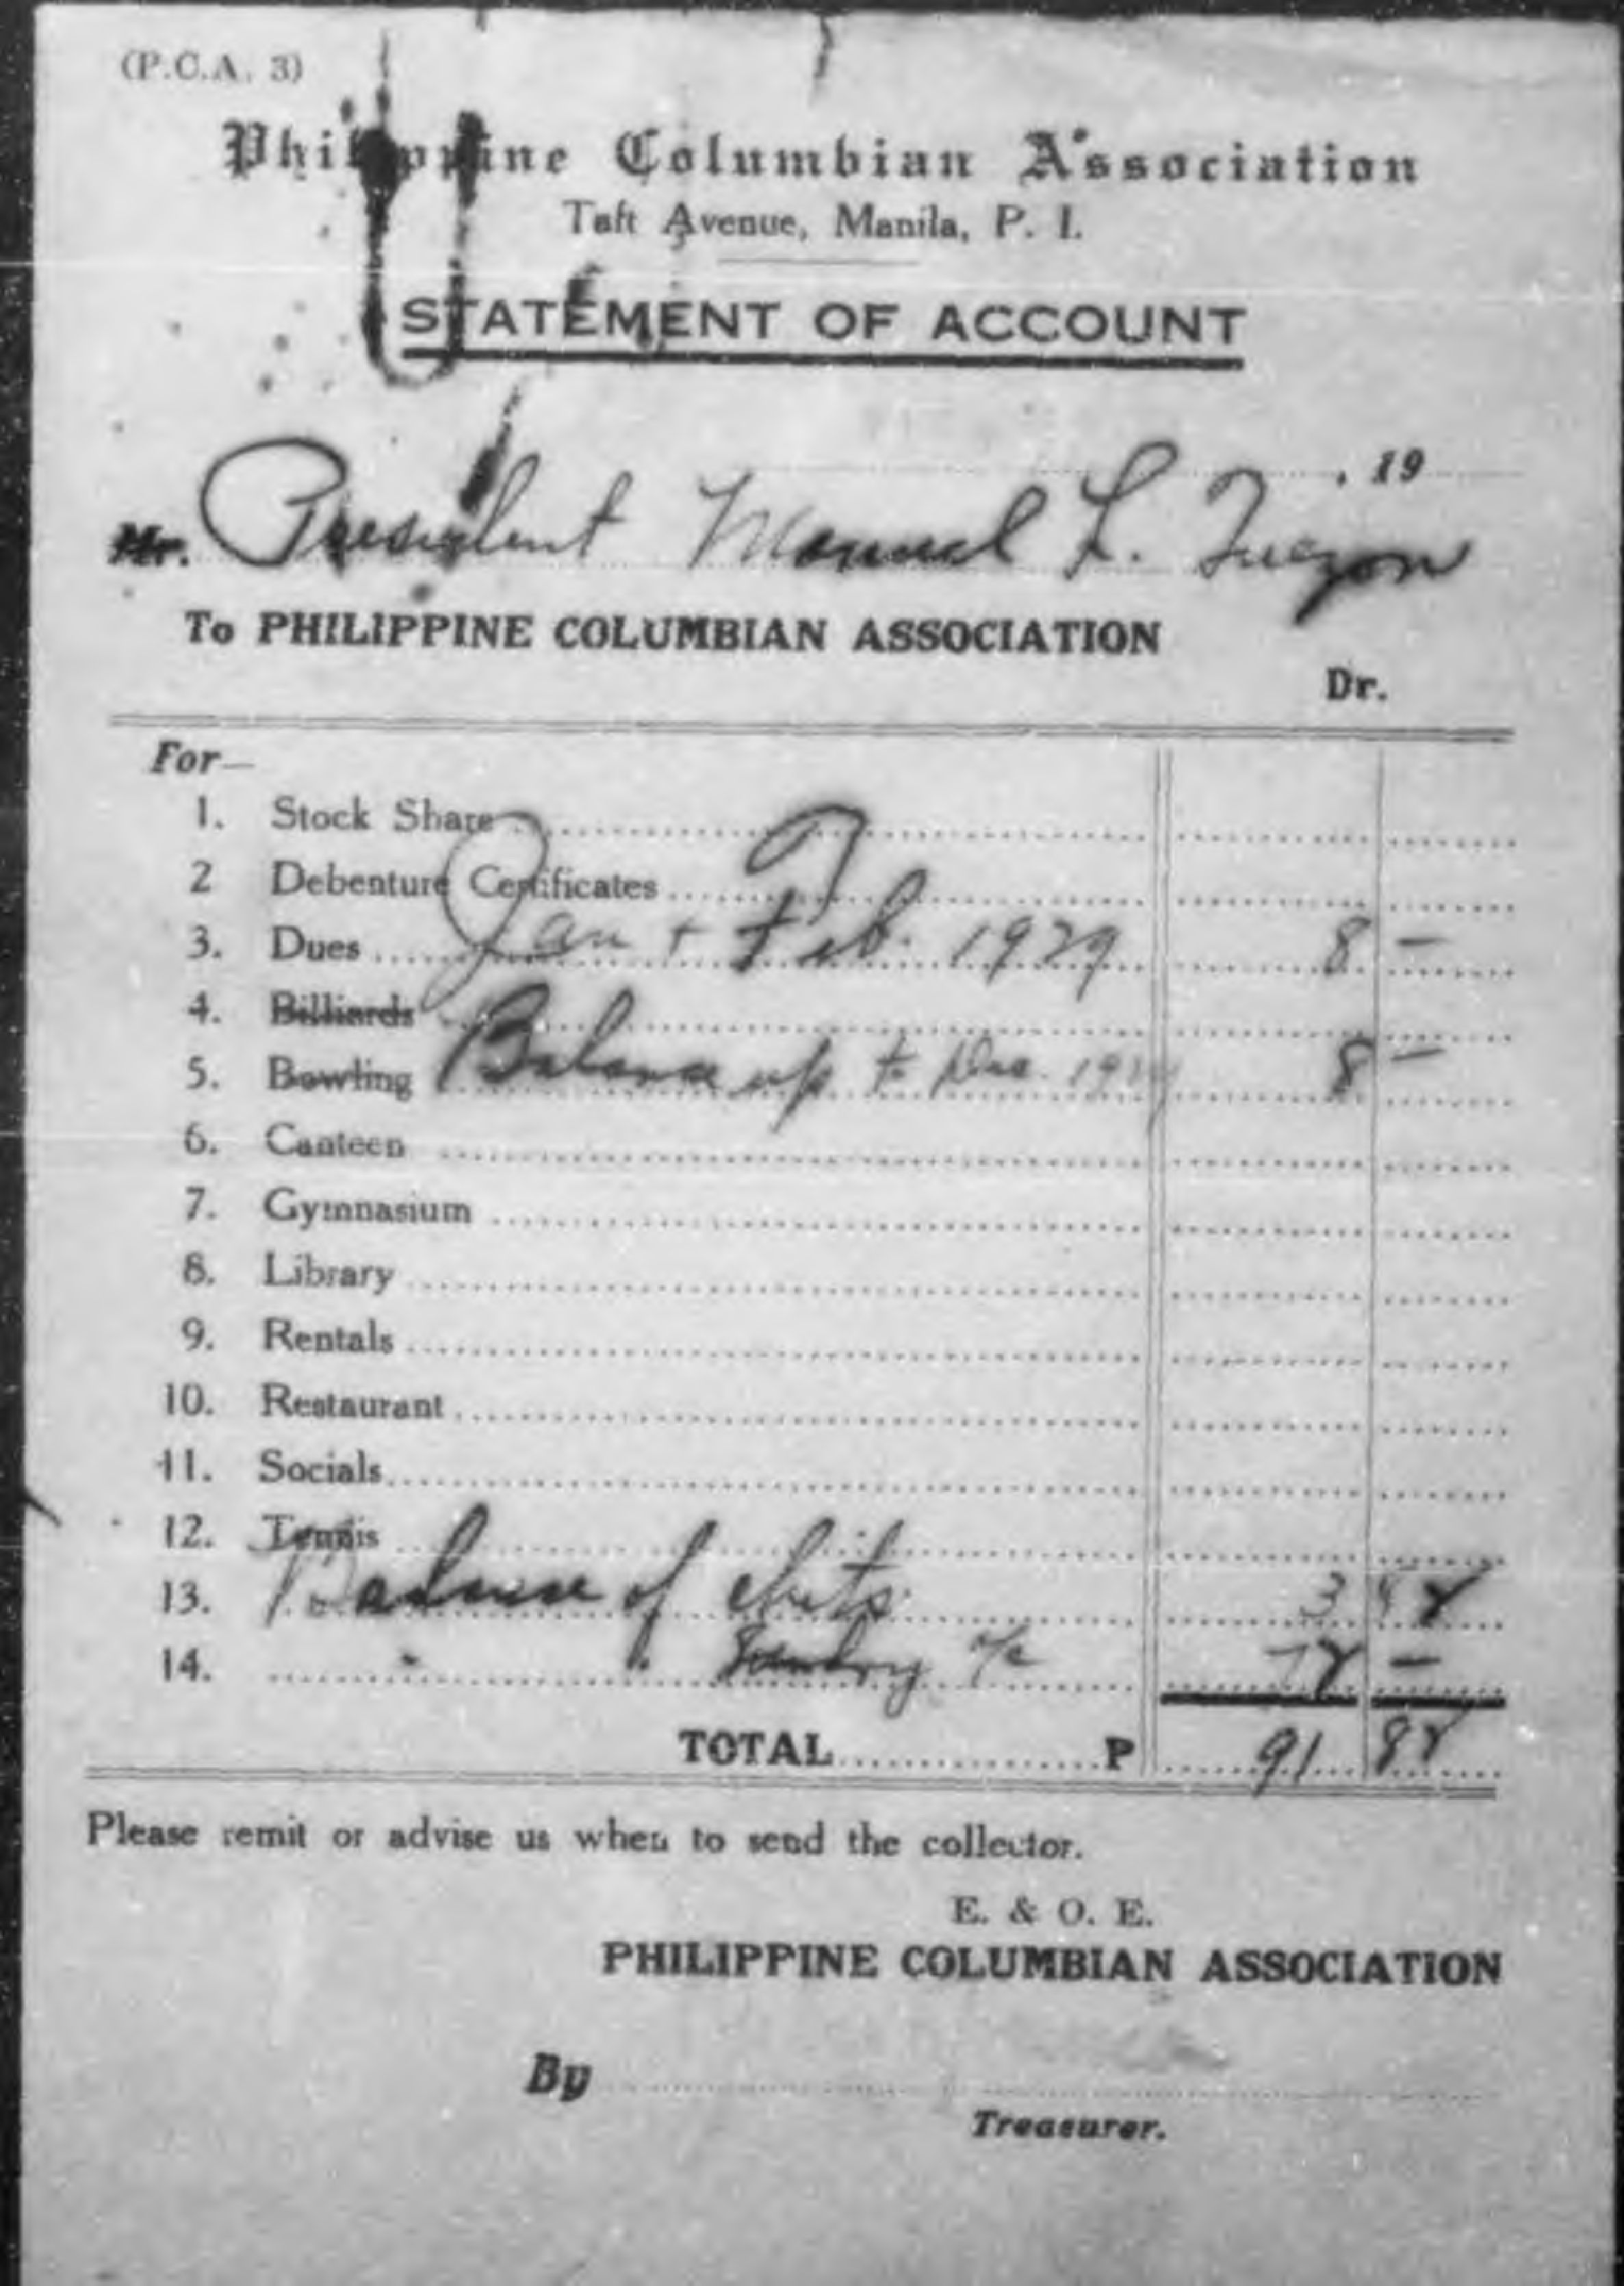 (P.C.A. 3)
Philippine Columbian Association
Taft Avenue, Manila, P. I.
STATEMENT OF ACCOUNT
, 19
Mr. President Manuel L. Quezon
To PHILIPPINE COLUMBIAN ASSOCIATION
Dr.
For—
1. Stock Share
2 Debenture Certificates
3. Dues Jan + Feb. 1929 8 —
4. Billiards
5. Bowling Balance up to Dec. 8 —
6. Canteen
7. Gymnasium
8. Library
9. Rentals
10. Restaurant
11. Socials
12. Tennis
13. Balance of chits 3 82
14. " " Sundry a/c 72 —
TOTAL P 91 82
Please remit or advise us when to send the collector.
E. & O. E.
PHILIPPINE COLUMBIAN ASSOCIATION
By
Treasurer.